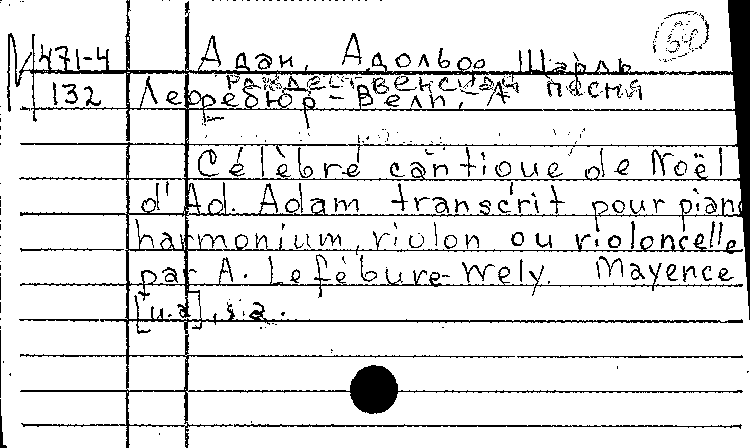 64
M 471-4 Адан, Адольф Шарль
Рождественская песня
132 Лефребюр-Вели, А
Célèbre cantique de Noël
d'Ad. Adam transcrit pour piano
harmonium, violon ou violoncelle
par A. Lefébure-Wely. Mayence
[u.a], s.a.